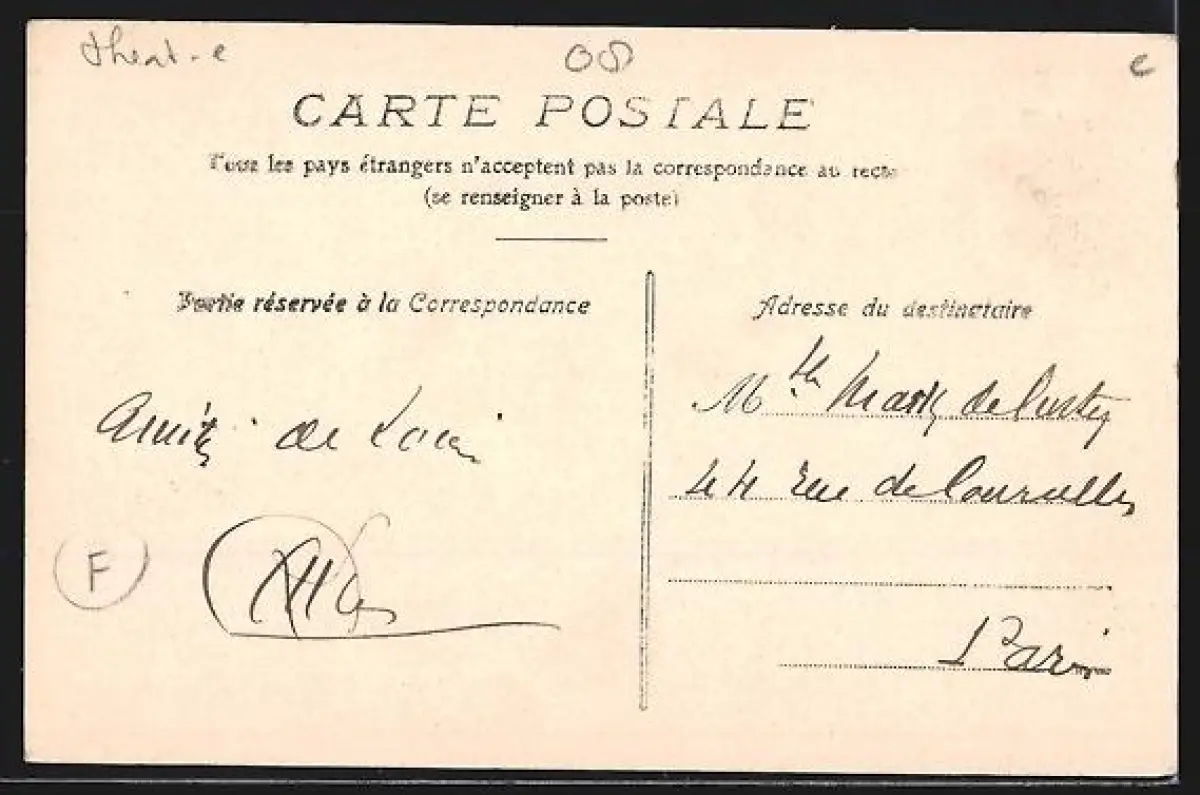 theat-e
08
c
CARTE POSTALE
Tous les pays étrangers n'acceptent pas la correspondance au recto
(se renseigner à la poste)
Partie réservée à la Correspondance
Adresse du destinataire
de
F
Mlle de
44 rue de Courcelles
Paris